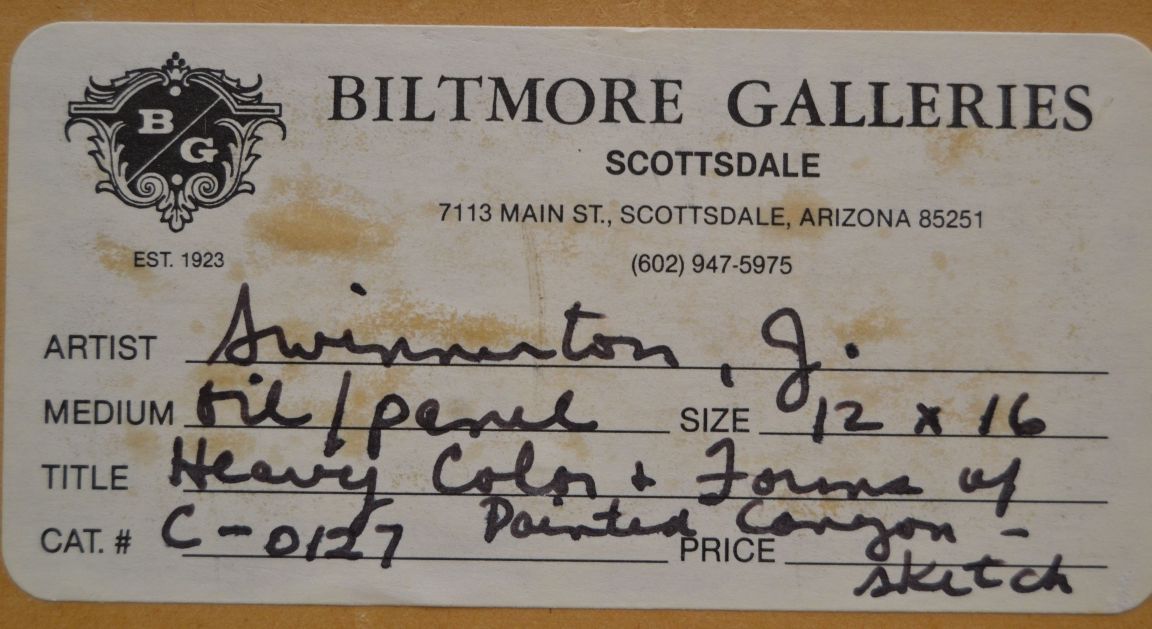 B G
BILTMORE GALLERIES
SCOTTSDALE
7113 MAIN ST., SCOTTSDALE, ARIZONA 85251
EST. 1923
(602) 947-5975
ARTIST Swinnerton, J.
MEDIUM Oil/panel SIZE 12 x 16
TITLE Heavy Color + Forms of
Painted Canyon -
CAT. # C-0127 PRICE
sketch